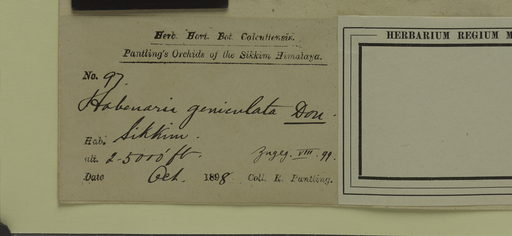 Herb. Hort. Bot. Calcuttensis.
Pantling's Orchids of the Sikkim Himalaya.
No. 97
Habenaria geniculata Don.
Hab. Sikkim.
alt. 2-5000 ft.
Zugeg. VIII. 99.
Date Oct. 1898 Coll. R. Pantling.
HERBARIUM REGIUM M